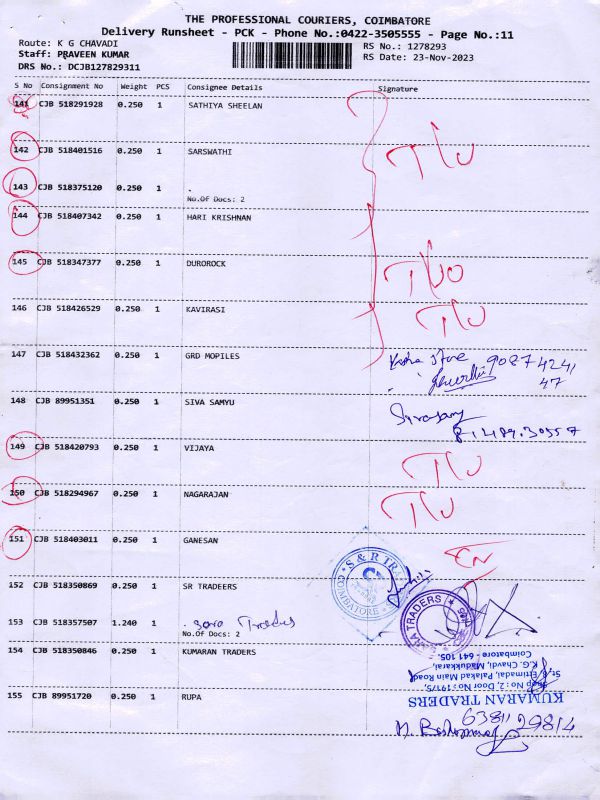 THE PROFESSIONAL COURIERS, COIMBATORE
Delivery Runsheet - PCK - Phone No.:0422-3505555 - Page No.:11
Route: K G CHAVADI
Staff: PRAVEEN KUMAR
DRS No.: DCJB127829311
RS No.: 1278293
RS Date: 23-Nov-2023
S No Consignment No Weight PCS Consignee Details Signature
141 CJB 518291928 0.250 1 SATHIYA SHEELAN
142 CJB 518401516 0.250 1 SARSWATHI
143 CJB 518375120 0.250 1 .
No.Of Docs: 2
144 CJB 518407342 0.250 1 HARI KRISHNAN
145 CJB 518347377 0.250 1 DUROROCK
146 CJB 518426529 0.250 1 KAVIRASI
147 CJB 518432362 0.250 1 GRD MOPILES
Store 90874241
47
148 CJB 89951351 0.250 1 SIVA SAMYU
149 CJB 518420793 0.250 1 VIJAYA
150 CJB 518294967 0.250 1 NAGARAJAN
151 CJB 518403011 0.250 1 GANESAN
S & R TRA
COIMBATORE
152 CJB 518350869 0.250 1 SR TRADEERS
153 CJB 518357507 1.240 1 . Sara Traders
No.Of Docs: 2
TRADERS
154 CJB 518350846 0.250 1 KUMARAN TRADERS
KUMARAN TRADERS
Shop No : 2, Door No : 191/5,
Ettimadai, Palakad Main Road,
K.G. Chavdi, Madukkarai,
Coimbatore - 641 105.
155 CJB 89951720 0.250 1 RUPA